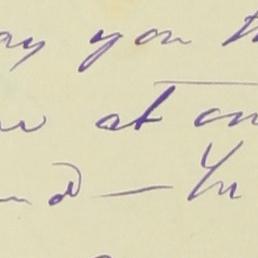 ay you th
at on
nd — Yu